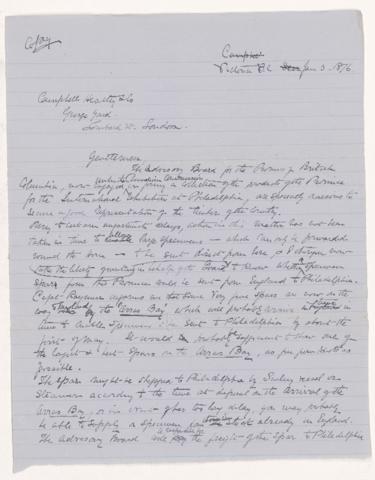 Copy
Victoria B.C. Jan 3. 1876
Campbell Heatly & Co
George Yard
Lombard St. London
Gentlemen
The Advisory Board for the Province of British
under the Canadian Commission
Columbia, now engaged in forming a collection of the products of the Province
for the International Exhibition at Philadelphia, are specially desirous to
secure a good representation of the timber of the Country.
Owing to certain unfortunate delays, action in this matter has not been
taken in time to allow large specimens — which can only be forwarded
round the Horn — to be sent direct from here, & I
take the liberty of writing on behalf of the Board to know whether specimen
spars from this Province could be sent from England to Philadelphia.
Capt. Raymur informs me that some very fine spars are now on the
way by the Acres Bay which will probably arrive in
time to enable specimens to be sent to Philadelphia by about the
first of May. It would probably be sufficient to have one of
the largest & best spars on the Acres Bay, as
possible.
The spar might be shipped to Philadelphia by sailing vessel or
steamer according to the time at disposal on the arrival of the
Acres Bay, or in case of her too long delay, you may probably
be able to supply a specimen from stock already in England.
The Advisory Board will pay the freight of the spar to Philadelphia